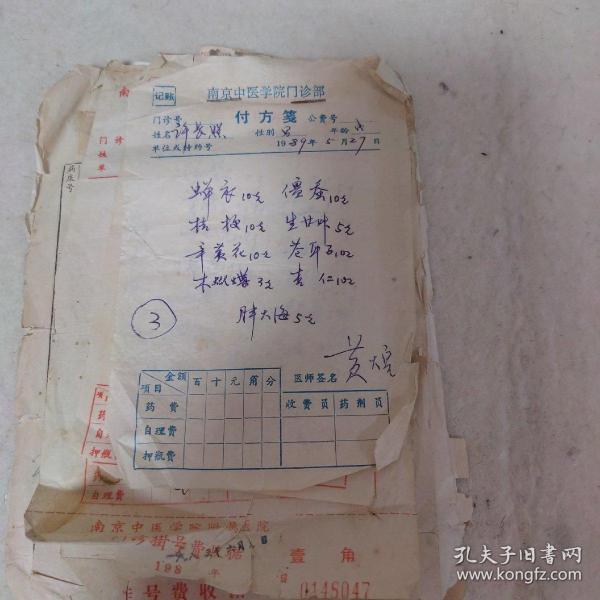 记账
南京中医学院门诊部
付方笺
门诊号 公费号
姓名 许长照 性别 男 年龄 成
单位或特约号 1989年5月27日
蝉衣10克 僵蚕10克
桔梗10克 生甘草5克
辛荑花10克 苍耳子10克
木蝴蝶3克 杏仁10克
③ 胖大海5克
医师签名 黄
项目 金额 百 十 元 角 分
收费员 药剂员
药费
自理费
押瓶费
南
门诊
姓
单
病床号
项
药
自
押瓶
自理费
南京中医学院附属医院
门诊掛号费收据
壹角
198 年
日
号费收
0145047
孔夫子旧书网
www.kongfz.com